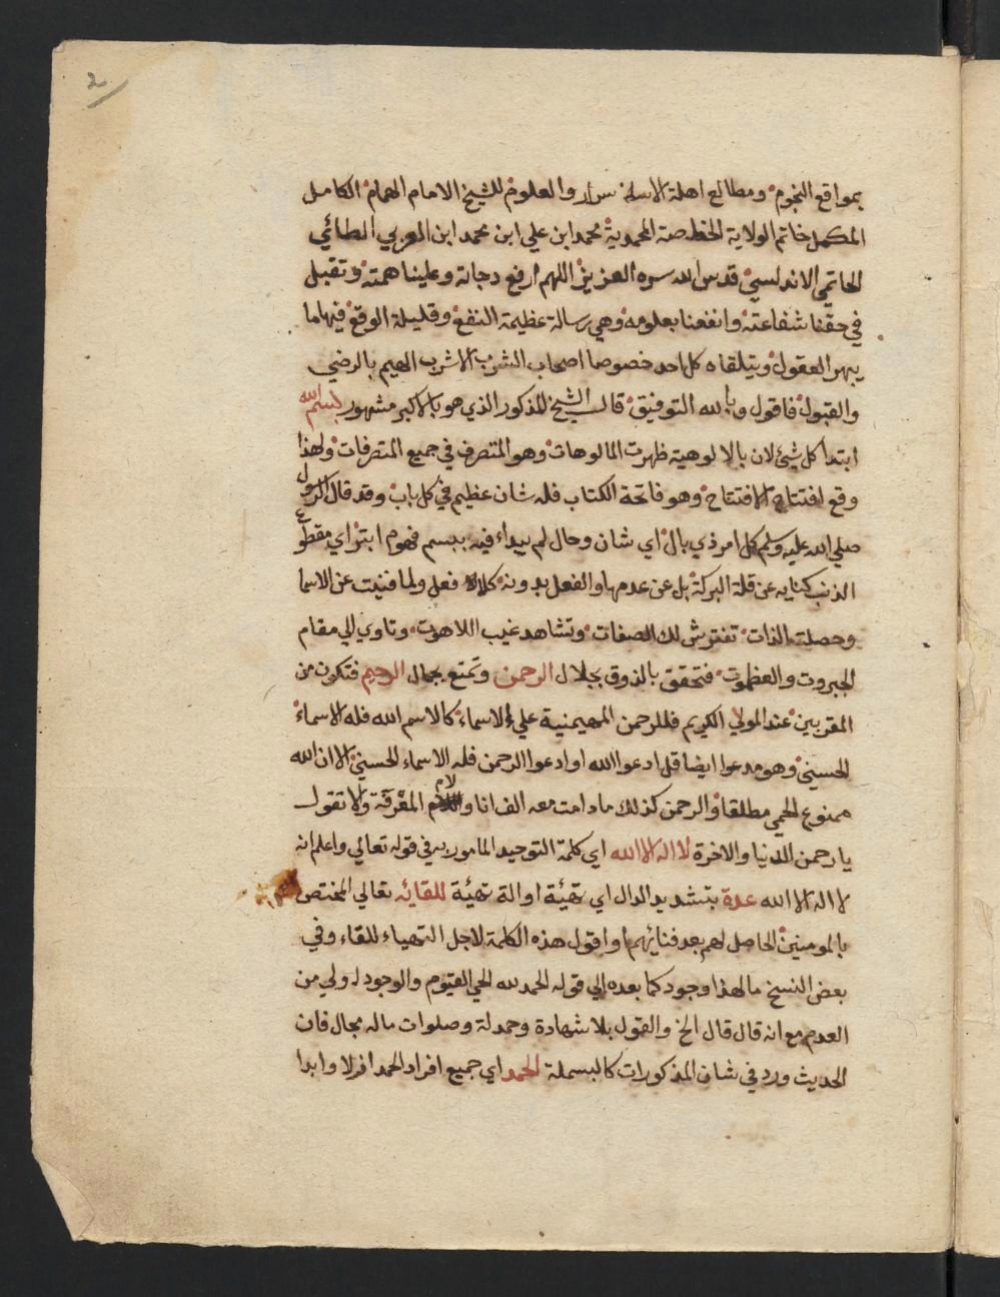 2
بمواقع النجوم ومطالع اهلة الاسرار والعلوم للشيخ الامام الهمام الكامل
المكمل خاتم الولاية الخاصة المحمدية محمد ابن علي ابن محمد ابن العربي الطائي
الحاتمي الاندلسي قدس الله سره العزيز اللهم ارفع درجاته وعلينا همته وتقبل
في حقنا شفاعته وانفعنا بعلومه وهي رسالة عظيمة النفع وقليلة الوقع فيها ما
يبهر العقول ويتلقاه كل احد خصوصا اصحاب الشرب الاشرب الهيم بالرضي
والقبول فاقول وبالله التوفيق قال الشيخ المذكور الذي هو بالاكبر مشهور بسم الله
ابتدا كل شيئ لان بالالوهية ظهرت المالوهات وهو المتصرف في جميع المتصرفات ولهذا
وقع افتتاح الافتتاح وهو فاتحة الكتاب فله شان عظيم في كل باب وقد قال الرسول
صلي الله عليه وسلم كل امر ذي بال اي شان وحال لم يبداء فيه ببسم فهو ابتر اي مقطوع
الذنب كنايه عن قلة البركة بل عن عدمها والفعل بدونه كلا فعل ولما فنيت عن الاسما
وحصلت الذات تفترش لك الصفات وتشاهد غيب اللاهوت وتاوي الي مقام
الجبروت والعظموت فتحقق بالذوق بجلال الرحمن وتمتع بجمال الرحيم فتكون من
المقربين عند المولي الكريم فللرحمن المهيمنية علي الاسماء كالاسم الله فله الاسماء
الحسني وهو مدعوا ايضا قل ادعوا الله او ادعوا الرحمن فله الاسماء الحسني الا ان الله
ممنوع الحمي مطلقا والرحمن كذلك مادامت معه الف انا ولام المعرفة ولا تقول
يا رحمن الدنيا والاخرة لا اله الا الله اي كلمة التوحيد المامور به في قوله تعالي واعلم انه
لا اله الا الله عدة بتشديد الدال اي تهيئة او الة تهيئة للقائه تعالي المختص
بالمومنين الحاصل لهم بعد فنائهم او اقول هذه الكلمة لاجل التهياء للقاء وفي
بعض النسخ ما لهذا وجود كما بعده الي قوله الحمد لله الحي القيوم والوجود له ولي من
العدم مع انه قال قال الخ والقول بلا شهادة وحمدلة وصلوات ماله مجال فان
الحديث ورد في شان المذكورات كالبسملة الحمد اي جميع افراد الحمد ازلا وابدا